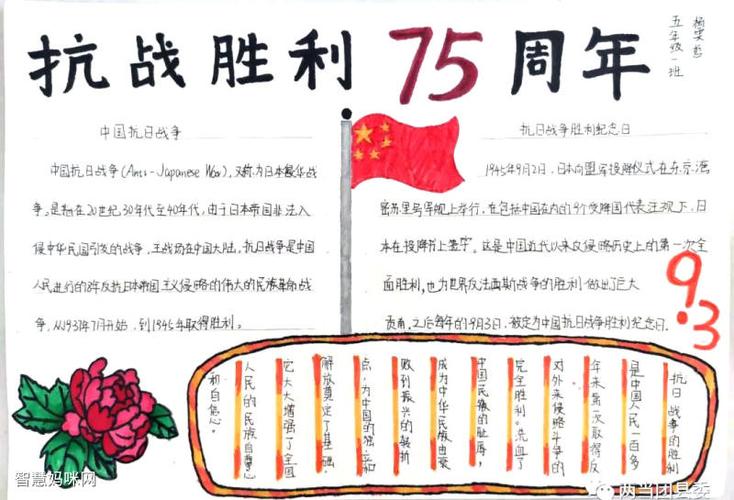 抗战胜利75周年
五年级一班
中国抗日战争
中国抗日战争(Anti-Japanese War),又称为日本侵华战
争。是指在20世纪30年代至40年代,由于日本帝国非法入
侵中华民国引发的战争,主战场在中国大陆。抗日战争是中国
人民进行的8年反抗日本帝国主义侵略的伟大的民族革命战
争,从1937年7月开始,到1945年取得胜利。
抗日战争胜利纪念日
1945年9月2日,日本向盟军投降仪式在东京湾
密苏里号军舰上举行,在包括中国在内的9个受降国代表注视下,日
本在投降书上签字。这是中国近代以来反侵略历史上的第一次全
面胜利,也为世界反法西斯战争的胜利做出了巨大
贡献.之后每年的9月3日,被定为中国抗日战争胜利纪念日.
9.3
抗日战争的胜利
是中国人民一百多
年来第一次取得反
对外来侵略斗争的
完全胜利。洗血了
中国民族的耻辱,
成为中华民族由衰
败到振兴的转折
点,为中国的独立和
解放奠定了基础。
它大大增强了全国
人民的民族自尊心
和自信心。
智慧妈咪网
两当团县委